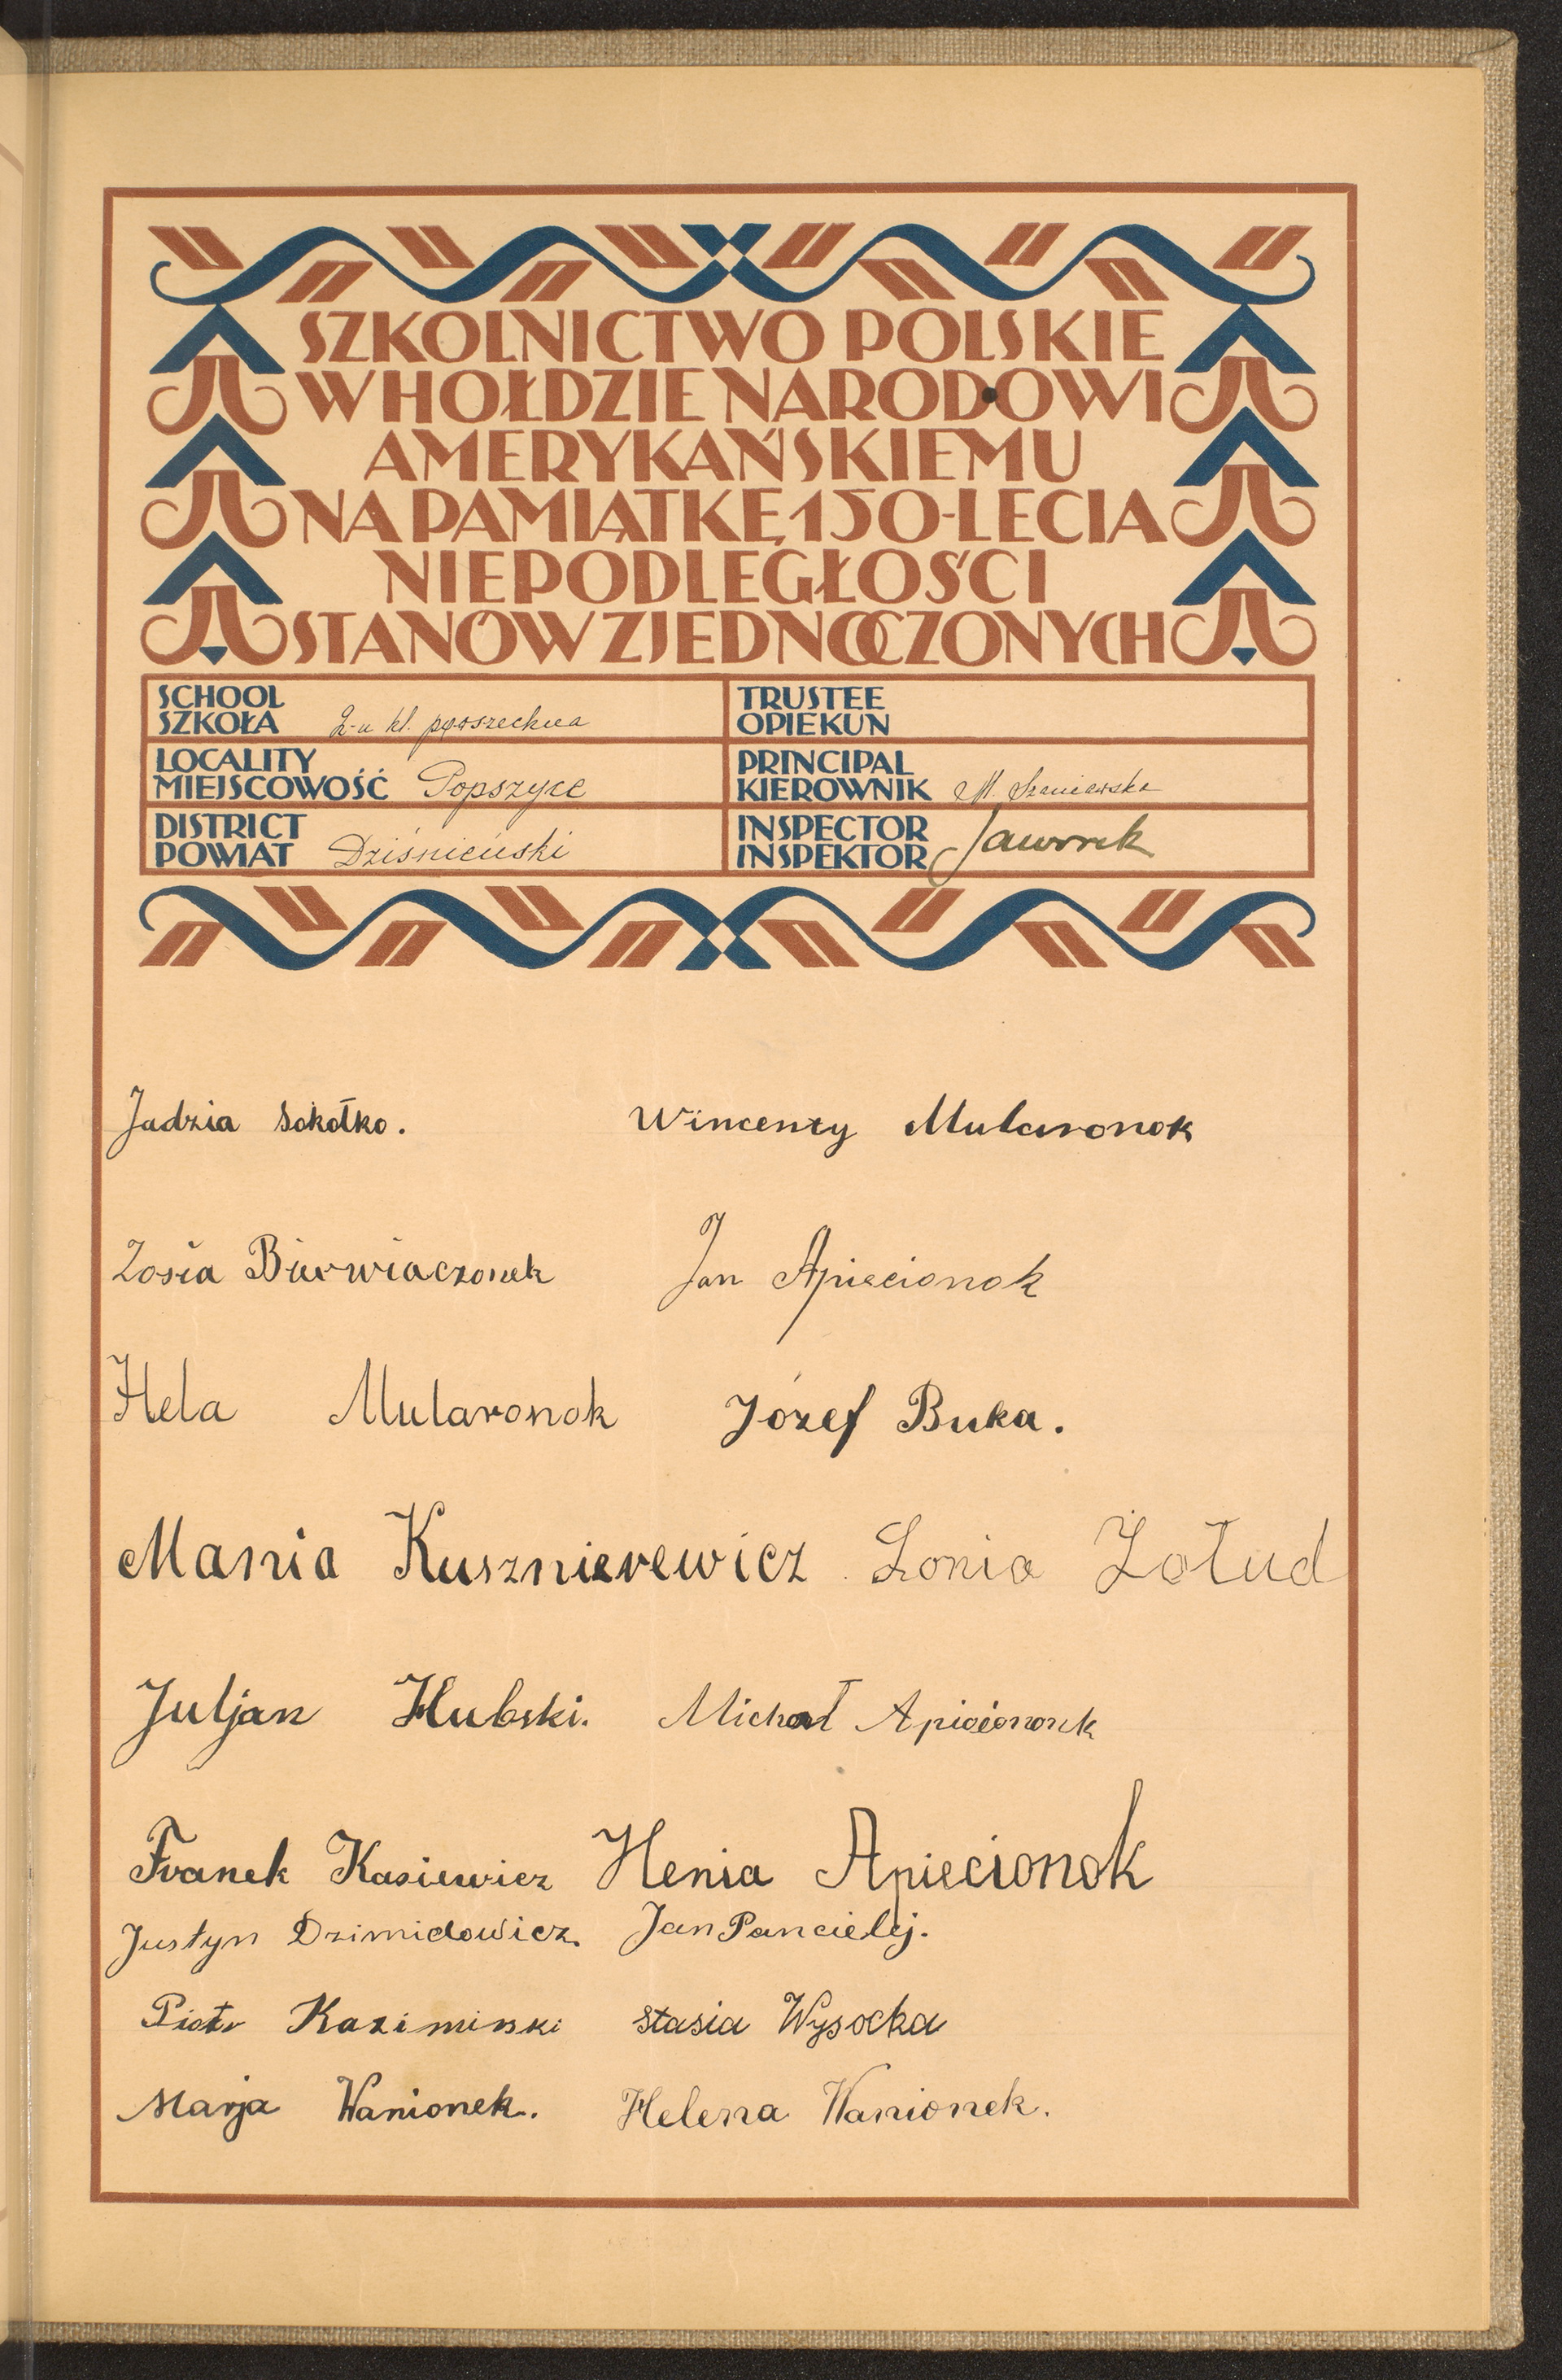 SZKOLNICTWO POLSKIE
W HOŁDZIE NARODOWI
AMERYKAŃSKIEMU
NA PAMIĄTKĘ 150-LECIA
NIEPODLEGŁOŚCI
STANÓW ZJEDNOCZONYCH
SCHOOL
SZKOŁA 2-u kl. powszechna
TRUSTEE
OPIEKUN
LOCALITY
MIEJSCOWOŚĆ Popszyce
PRINCIPAL
KIEROWNIK M. Szeniawska
DISTRICT
POWIAT Dziśnieński
INSPECTOR
INSPEKTOR Jaworek
Jadzia Sokołko. Wincenty Mularonok
Zosia Bierwiaczonek Jan Apiecionok
Hela Mularonok Józef Buka.
Mania Kusznierewicz Lonia Żołud
Juljan Hubski. Michał Apiecionek
Franek Kasiewicz Henia Apiecionok
Justyn Dzimidowicz. Jan Pancielej.
Piotr Kaziminski Stasia Wysocka
Marja Wanionek. Helena Wanionek.